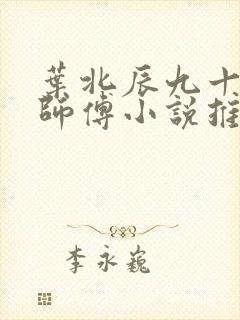 葉北辰九十
師傅小說推
李永巍